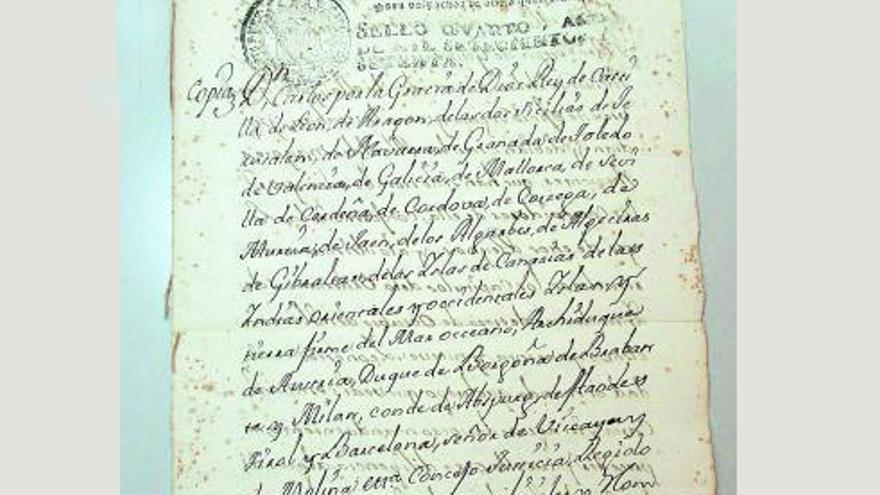 SELLO QVARTO, AÑO
DE MIL SETECIENTOS
SETENTA.
Copia Dn. Carlos por la Gracia de Dios Rey de Casti
lla de Leon, de Aragon, de las dos Sicilias de Je
rusalem, de Navarra, de Granada de Toledo
de Valencia, de Galicia, de Mallorca, de Sevi
lla de Cerdeña, de Cordova, de Corcega, de
Murcia, de Jaen, de los Algarbes, de Algeciras
de Gibraltar, de las Islas de Canarias de las
Indias orientales y occidentales Islas y
tierra firme del Mar occeano, Archiduque
de Austria, Duque de Borgoña de Braban
te y Milan, conde de Abspurg, de Flandes
Tirol y Barcelona, señor de Vizcaya y
de Molina etta. Concejo Justicia, Regido
Nom